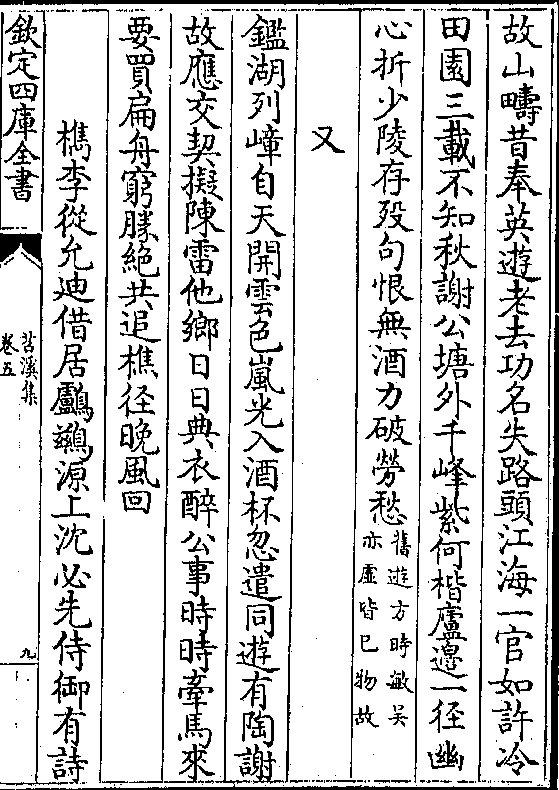 故山疇昔奉英遊老去功名失路頭江海一官如許冷
田園三載不知秋謝公塘外千峰紫何楷廬邉一径幽
心折少陵存歿句恨無酒力破勞愁舊遊方時敏吴亦虚皆已物故
又
鑑湖列嶂自天開雲色嵐光入酒杯忽遣同遊有陶謝
故應交契擬陳雷他鄉日日典衣醉公事時時牽馬來
要買扁舟窮勝絶共追樵径晚風回
檇李從允迪借居鸕鷀源上沈必先侍御有詩
欽定四庫全書
苕溪集
卷五
九